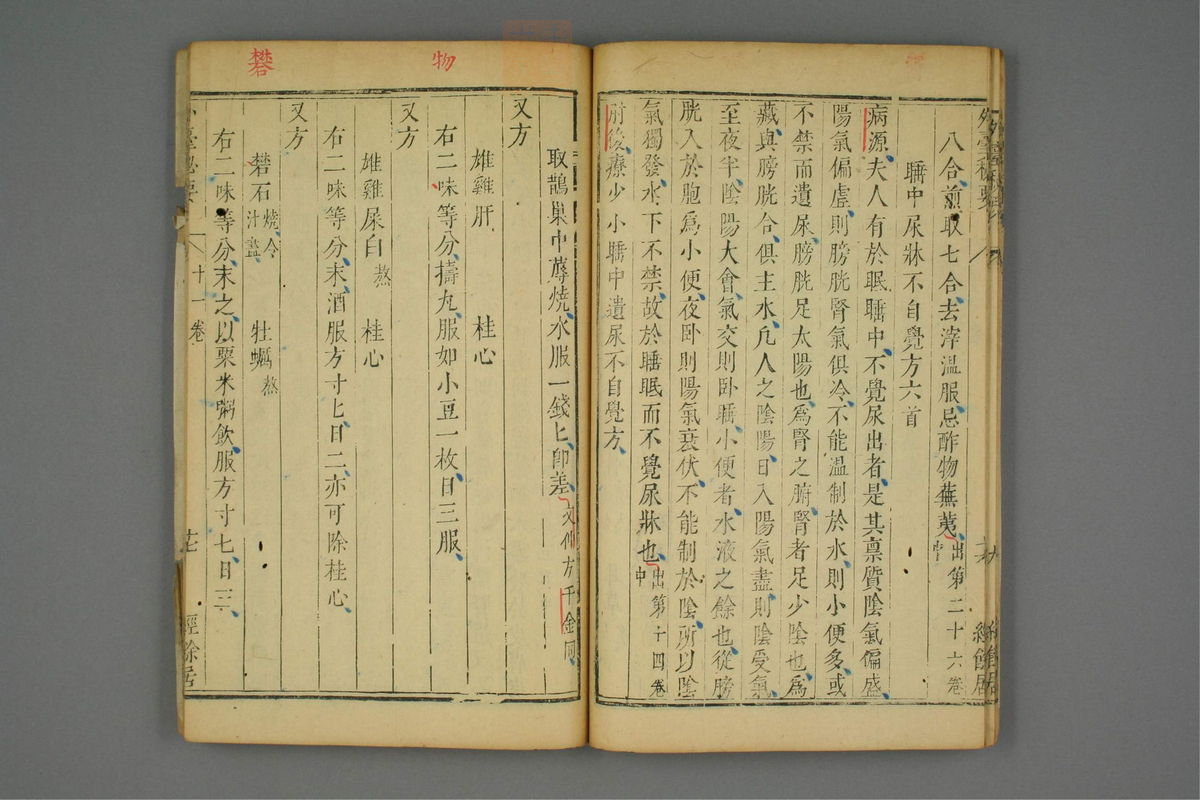 八合煎取七合去滓溫服忌酢物蕪荑出第二十六卷中
睡中尿牀不自覺方六首
病源夫人有於眠睡中不覺尿出者是其稟質陰氣偏盛
陽氣偏虛則膀胱腎氣俱冷不能溫制於水則小便多或
不禁而遺尿膀胱足太陽也爲腎之腑腎者足少陰也爲
藏與膀胱合俱主水凡人之陰陽日入陽氣盡則陰受氣
至夜半陰陽大會氣交則臥睡小便者水液之餘也從膀
胱入於胞爲小便夜臥則陽氣衰伏不能制於陰所以陰
氣獨發水下不禁故於睡眠而不覺尿牀也出第十四卷中
肘後療少小睡中遺尿不自覺方
取鵲巢中蓐燒水服一錢匕卽差文仲方千金同
又方
雄雞肝 桂心
右二味等分擣丸服如小豆一枚日三服
又方
雄雞屎白熬 桂心
右二味等分末酒服方寸匕日二亦可除桂心
又方
礬石燒令汁盡 牡蠣熬
右二味等分末之以粟米粥飲服方寸匕日三
外臺秘要 十一卷 十七 經餘居
物
礬